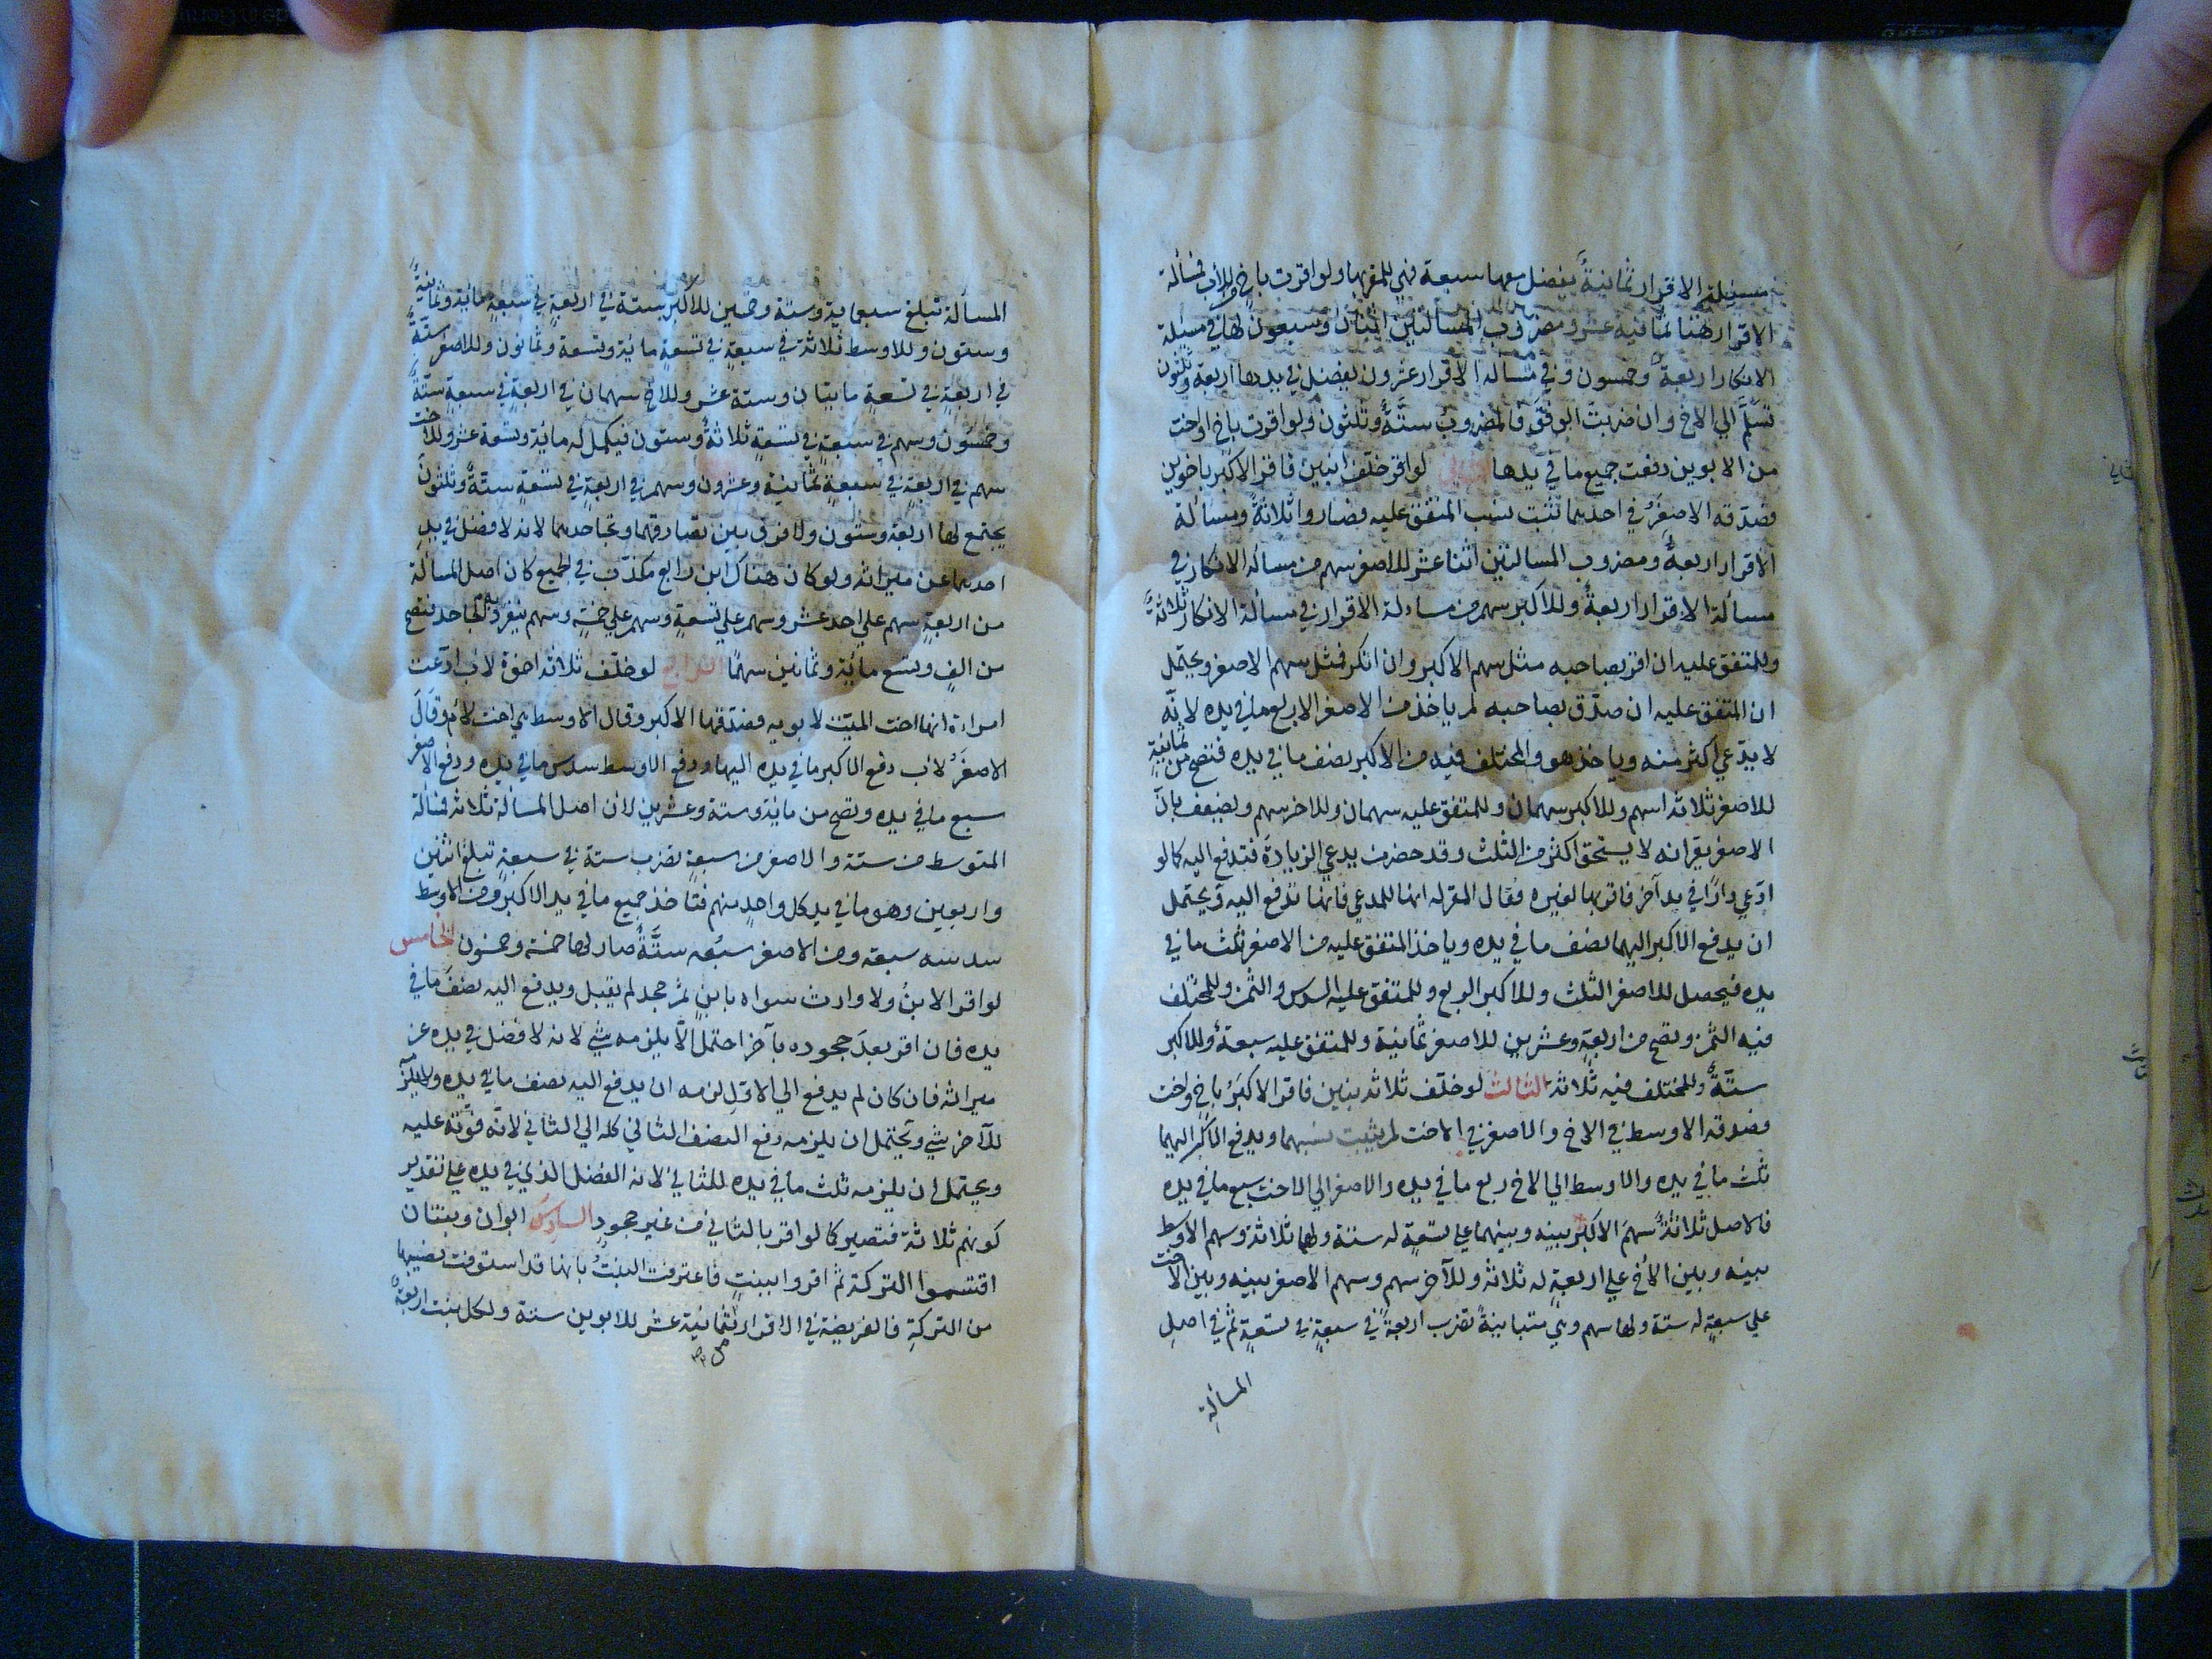 مسئلة الاقرار ثمانيةٌ يفضل معها سبعة فهي للمقر بها ولو اقرت باخٍ للاب فمسألة
الاقرار هنا ثمانية عشر ومضروب المسألتين اثنان وسبعون لها في مسئلة
الانكار اربعةٌ وخمسون وفي مسألة الاقرار عشرون يفضل في يدها اربعة وثلثون
تسلّم الي الاخ وان ضربتَ الوفقَ فالمضروبُ ستّةٌ وثلثون ولو اقرت باخ او اخت
من الابوين دفعت جميع ما في يدها لو اقر خلّف ابنين فاقر الاكبر باخوين
فصدّقه الاصغرُ في احدهما تثبت نسب المتفق عليه فصاروا ثلاثةً ومسألة
الاقرار اربعةٌ ومضروب المسألتين اثنا عشر للاصغر سهم من مسألة الانكار في
مسألة الاقرار اربعةٌ وللاكبر سهم من مسألة الاقرار في مسألة الانكار ثلاثةٌ
وللمتفق عليه ان اقر بصاحبه مثل سهم الاكبر وان انكر فمثل سهم الاصغر ويحتمل
ان المتفق عليه ان صدّق بصاحبه لم ياخذ من الاصغر الا ربع ما في يده لانّه
لا يدّعي اكثر منه وياخذ هو والمختلف فيه من الاكبر نصف ما في يده فتصح من ثمانيةٍ
للاصغر ثلاثة اسهم وللاكبر سهمان وللمتفق عليه سهمان وللاخر سهم ويضعف بانّ
الاصغر يقر انه لا يستحق اكثر من الثلث وقد حضر من يدعي الزيادةَ فتدفع اليه كما لو
ادّعي دارًا في يد آخر فاقر بها لغيره فقال المقر له انها للمدعي فانها تدفع اليه ويحتمل
ان يدفع الاكبر اليهما نصف ما في يده وياخذ المتفق عليه من الاصغر ثلث ما في
يده فيحصل للاصغر الثلث وللاكبر الربع وللمتفق عليه السدس والثمن وللمختلف
فيه الثمن وتصح من اربعةٍ وعشرين للاصغر ثمانية وللمتفق عليه سبعةٌ وللاكبر
ستّةٌ وللمختلف فيه ثلاثة الثالث لو خلّف ثلاثة بنين فاقر الاكبرُ باخٍ واختٍ
فصدقه الاوسط في الاخ والاصغر في الاخت لم يثبت نسبهما ويدفع الاكبر اليهما
ثلث ما في يده والاوسط الي الاخ ربع ما في يده والاصغر الي الاخت سبع ما في يده
فالاصل ثلاثةٌ سهمُ الاكبر بينه وبينهما علي تسعةٍ له ستة ولهما ثلاثة وسهم الاوسط
بينه وبين الاخ علي اربعةٍ له ثلاثةٌ وللآخر سهم وسهم الاصغر بينه وبين الاخت
علي سبعةٍ له ستة ولها سهم وهي متباينةٌ تضرب اربعةً في سبعةٍ في تسعةٍ ثم في اصلِ
المسألةِ
المسألة تبلغ سبعماية وستة وخمسين للاكبر ستة في اربعةٍ في سبعةٍ مائة وثمانيةٌ
وستون وللاوسط ثلاثة في سبعةٍ في تسعةٍ مائة وتسعة وثمانون وللاصغر ستّةٌ
في اربعةٍ في تسعةٍ مايتان وستة عشر وللاخ سهمان في اربعةٍ في سبعةٍ ستّةٌ
وخمسون وسهم في سبعةٍ في تسعةٍ ثلاثةٌ وستون فيكمل له مائة وتسعة عشر وللاخت
سهم في اربعةٍ في سبعةٍ ثمانية وعشرون وسهم في اربعةٍ في تسعةٍ ستةٌ وثلثون
يجتمع لها اربعة وستون ولا فرق بين تصادقهما وتجاحدهما لانه لا فضل في يدِ
احدهما عن ميراثه ولو كان هناك ابن رابع مكذّب في الجميع كان اصل المسألة
من اربعةٍ سهم علي احد عشر وسهم علي تسعةٍ وسهم علي خمسٍة وسهم ينفرد به الجاحد فتصح
من الفٍ وتسع مائة وثمانين سهمًا الرابع لو خلّف ثلاثة اخوة لاب ادّعت
امراة انها اخت الميّت لابويه فصدّقها الاكبر وقال الاوسط هي اخت لام وقالَ
الاصغرُ لاب دفع الاكبر ما في يده اليها ودفع الاوسط سدس ما في يده ودفع الاصغر
سبع ما في يده وتصح من مائة وستة وعشرين لان اصل المسألة ثلاثة فمسألة
المتوسط من ستة والاصغر من سبعةٍ تضرب ستة في سبعةٍ تبلغ اثنين
واربعين وهو ما في يد كل واحدٍ منهم فتأخذ جميع ما في يد الاكبر ومن الاوسط
سدسه سبعة ومن الاصغر سبُعه ستّةٌ صار لها خمسة وخمسون الخامس
لو اقر الابنُ ولا وارث سواه بابنٍ ثمّ جحد لم يقبل ويدفع اليه نصفَ ما في
يده فان اقر بعدَ جحوده بآخر احتمل الّا يلزمه شيء لانه لا فضل في يده عن
ميراثه فان كان لم يدفع الي الاوّلِ لزمه ان يدفع اليه نصف ما في يده ولا يلزمُ
للآخر شيءٌ ويحتمل ان يلزمه دفع النصف الثاني كله الي الثاني لانّه فوّته عليه
ويحتمل ان يلزمه ثلث ما في يده للثاني لانه الفضل الذي في يده علي تقديرِ
كونهم ثلاثة فتصير كما لو اقر بالثاني من غير جحودٍ السادس ابوان وبنتان
اقتسموا التركة ثم اقروا ببنتٍ فاعترفت البنتُ بانها قد استوفت نصيبها
من التركةِ فالفريضة في الاقرار ثمانية عشر للابوين ستة ولكل بنت اربعةٌ